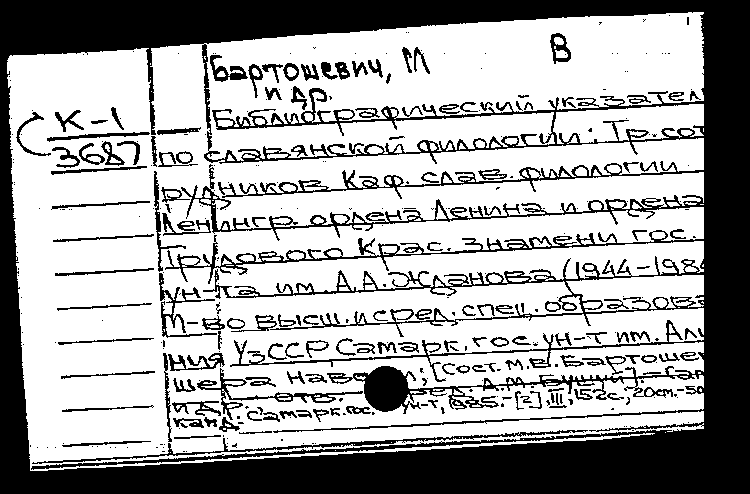 Бартошевич, М В
и др.
К-1
3687
Библиографический указател
по славянской филологии: Тр. сот
рудников Каф. слав. филологии
Ленингр. ордена Ленина и ордена
Трудового Крас. Знамени гос.
ун-та им. А.А. Жданова (1944-1984
М-во высш. и сред. спец. образова
ния УзССР Самарк. гос. ун-т им. Али
шера Наво и; [Сост. М.В. Бартоше
и др. отв. ред. А.М. Бушуй].-
канд.: Самарк. гос. ун-т, 1985.- [2], III, 152с.; 20см.-50